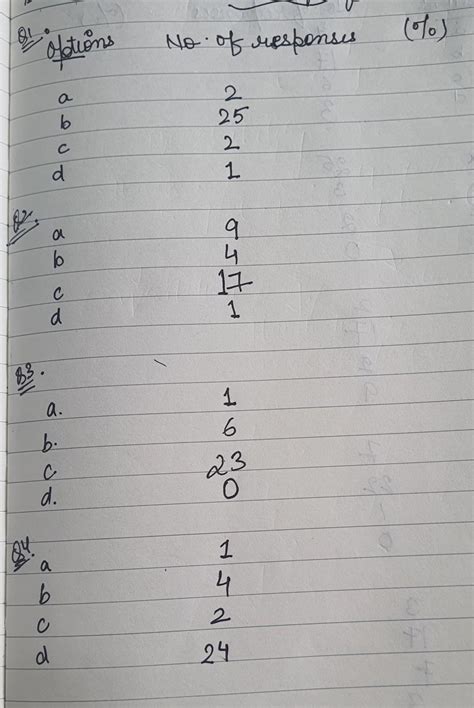 Q1. Options No. of responses (%)
a 2
b 25
c 2
d 1
Q2.
a 9
b 4
c 17
d 1
Q3.
a. 1
b. 6
c 23
d. 0
Q4.
a 1
b 4
c 2
d 24